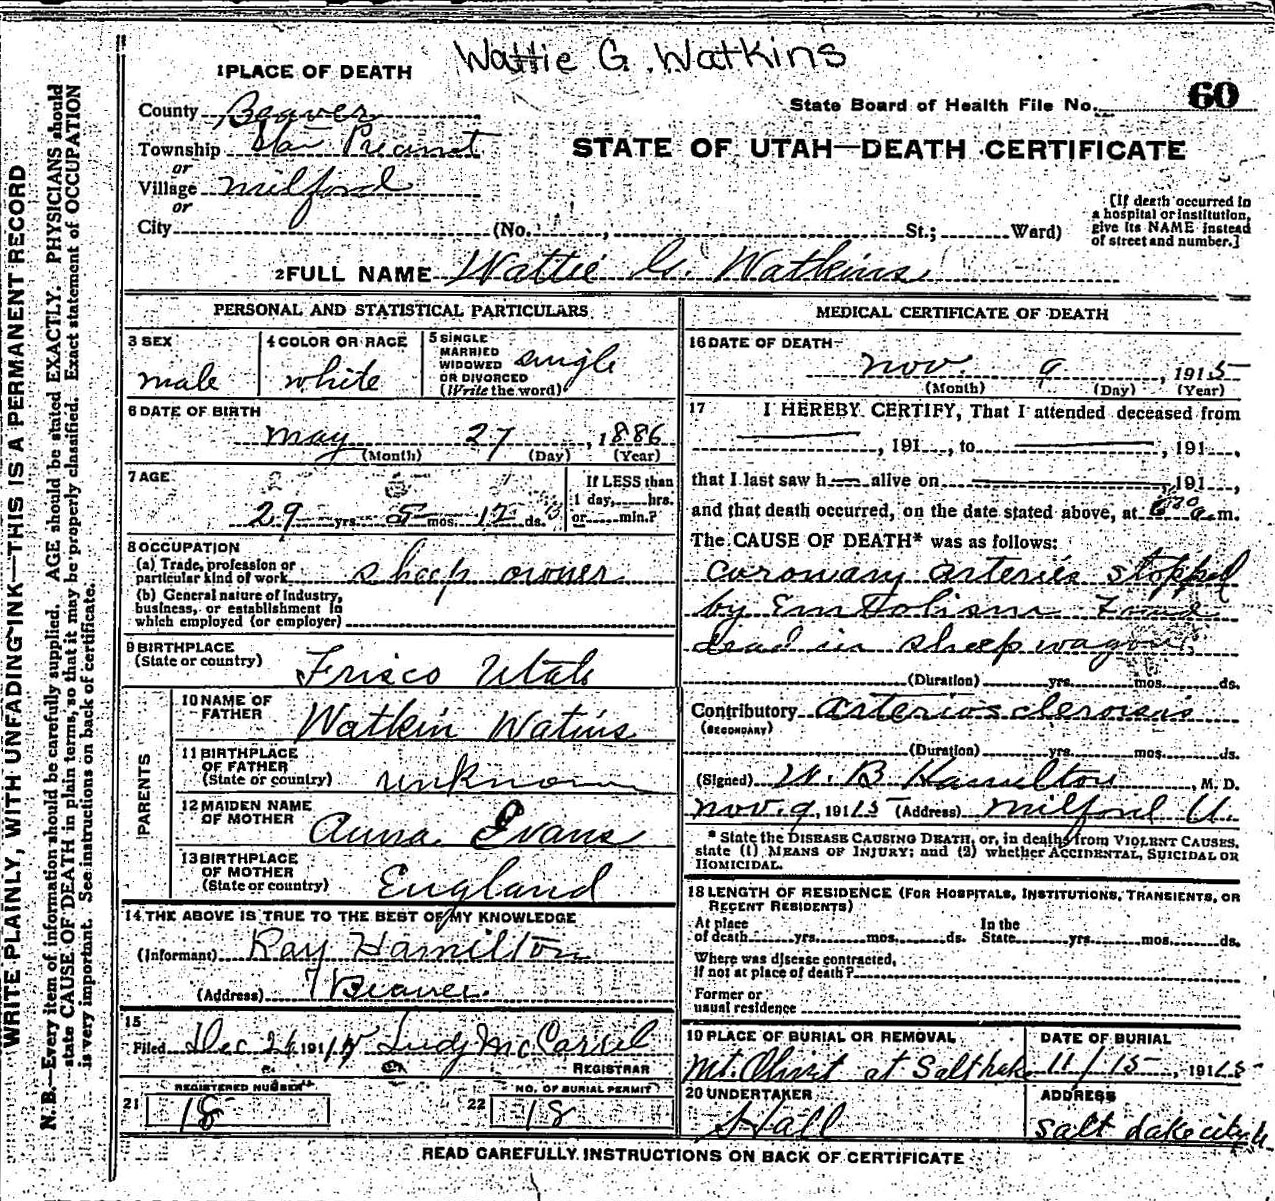 Wattie G. Watkins
1 PLACE OF DEATH
County Beaver
State Board of Health File No. 60
Township Star Precinct
STATE OF UTAH—DEATH CERTIFICATE
or
Village Milford
or
City (No. , St.; Ward)
[If death occurred in
a hospital or institution,
give its NAME instead
of street and number.]
2 FULL NAME Wattie G. Watkins
PERSONAL AND STATISTICAL PARTICULARS
3 SEX
male
4 COLOR OR RACE
white
5 SINGLE
MARRIED
WIDOWED
OR DIVORCED
(Write the word)
single
6 DATE OF BIRTH
May 27, 1886
(Month) (Day) (Year)
7 AGE
29 yrs. 5 mos. 12 ds.
If LESS than
1 day, hrs.
or min.?
8 OCCUPATION
(a) Trade, profession or
particular kind of work sheep owner
(b) General nature of industry,
business, or establishment in
which employed (or employer)
9 BIRTHPLACE
(State or country)
Frisco Utah
PARENTS
10 NAME OF
FATHER
Watkin Watins
11 BIRTHPLACE
OF FATHER
(State or country)
unknown
12 MAIDEN NAME
OF MOTHER
Anna Evans
13 BIRTHPLACE
OF MOTHER
(State or country)
England
14 THE ABOVE IS TRUE TO THE BEST OF MY KNOWLEDGE
(Informant) Ray Hamilton
(Address) Beaver.
15
Filed Dec 26 1915
REGISTRAR
REGISTERED NUMBER
21 18
NO. OF BURIAL PERMIT
22 18
MEDICAL CERTIFICATE OF DEATH
16 DATE OF DEATH
Nov. 9, 1915
(Month) (Day) (Year)
17 I HEREBY CERTIFY, That I attended deceased from
, 191 , to , 191 ,
that I last saw h alive on , 191 ,
and that death occurred, on the date stated above, at 6 30 a.m.
The CAUSE OF DEATH* was as follows:
coronary arteries stopped
by Embolism Found
dead in sheep wagon.
(Duration) yrs. mos. ds.
Contributory arteriosclerosis
(SECONDARY)
(Duration) yrs. mos. ds.
(Signed) W. B. Hamilton, M. D.
Nov. 9, 1915 (Address) Milford U.
* State the DISEASE CAUSING DEATH, or, in deaths from VIOLENT CAUSES,
state (1) MEANS OF INJURY; and (2) whether ACCIDENTAL, SUICIDAL OR
HOMICIDAL.
18 LENGTH OF RESIDENCE (FOR HOSPITALS, INSTITUTIONS, TRANSIENTS, OR
RECENT RESIDENTS)
At place In the
of death yrs. mos. ds. State yrs. mos. ds.
Where was disease contracted,
if not at place of death?
Former or
usual residence
19 PLACE OF BURIAL OR REMOVAL
Mt. Olivit at Salt Lake
DATE OF BURIAL
11/15, 1915
20 UNDERTAKER
Hall
ADDRESS
Salt Lake city U
READ CAREFULLY INSTRUCTIONS ON BACK OF CERTIFICATE
WRITE PLAINLY, WITH UNFADING INK—THIS IS A PERMANENT RECORD
N. B.—Every item of information should be carefully supplied. AGE should be stated EXACTLY. PHYSICIANS should
state CAUSE OF DEATH in plain terms, so that it may be properly classified. Exact statement of OCCUPATION
is very important. See instructions on back of certificate.